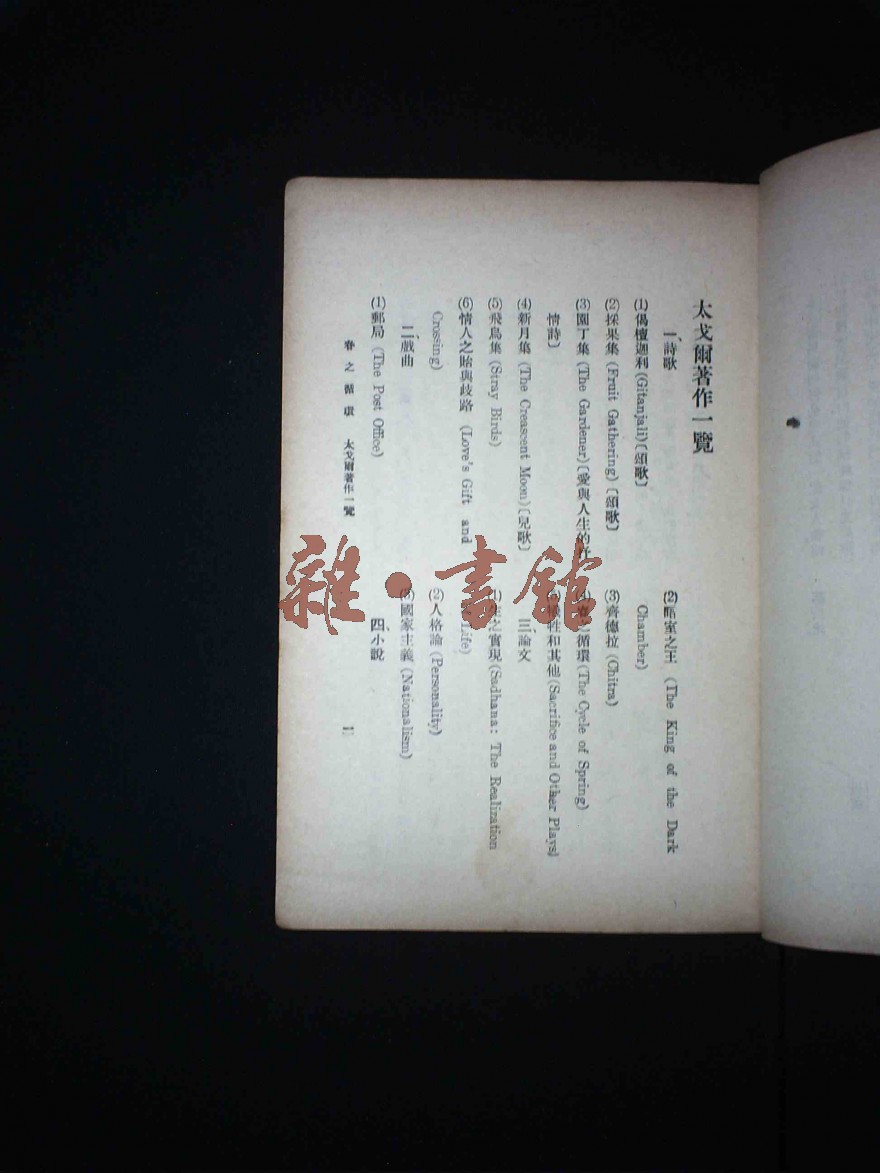 太戈爾著作一覽
一、詩歌
(1)偈檀迦利(Gitanjali)〔頌歌〕
(2)採果集 (Fruit Gathering)〔頌歌〕
(3)園丁集 (The Gardener)〔愛與人生的抒
情詩〕
(4)新月集 (The Creascent Moon)〔兒歌〕
(5)飛鳥集 (Stray Birds)
(6)情人之貽與歧路 (Love's Gift and
Crossing)
二、戲曲
(1)郵局 (The Post Office)
(2)暗室之王 (The King of the Dark
Chamber)
(3)齊德拉 (Chitra)
循環 (The Cycle of Spring)
犧牲和其他 (Sacrifice and Other Plays)
三、論文
實現 (Sadhana: The Realization
Life)
(2)人格論 (Personality)
(3)國家主義 (Nationalism)
四、小說
春之循環 太戈爾著作一覽
雜·書館